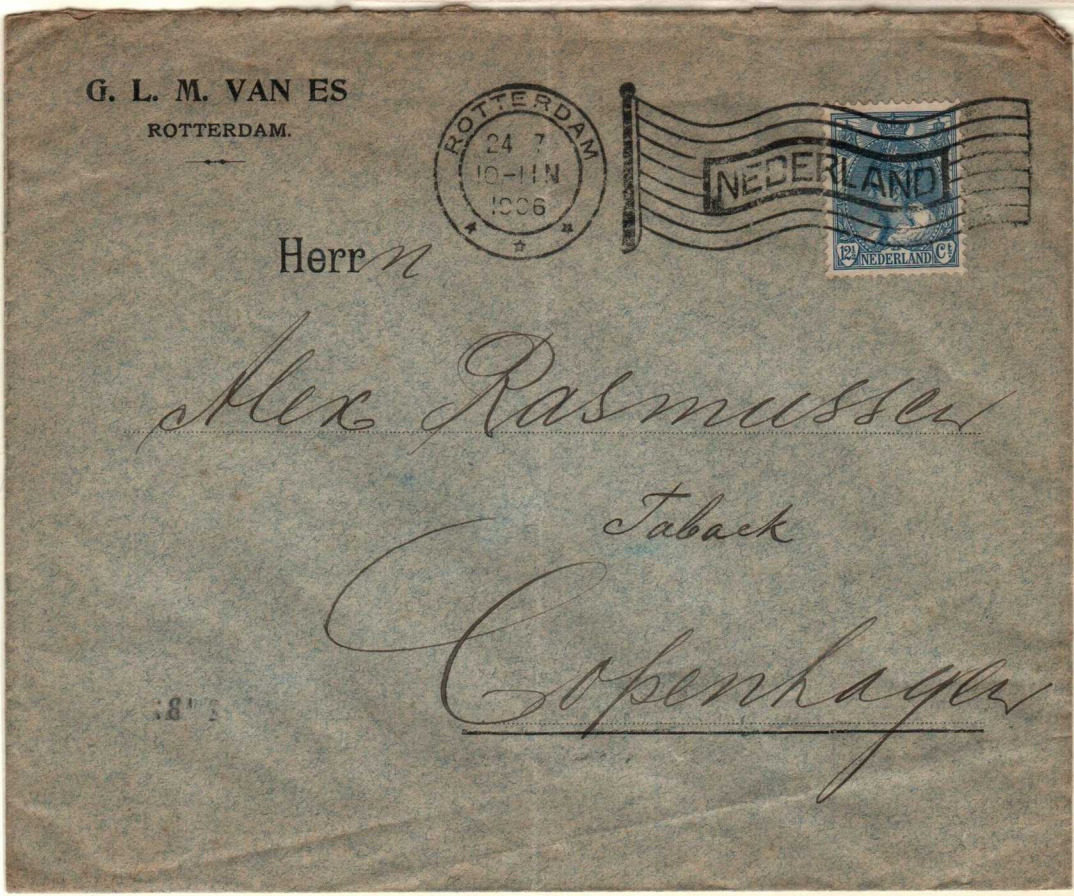 G. L. M. VAN ES
ROTTERDAM.
ROTTERDAM
24 7
10-11 N
1906
NEDERLAND
12½ NEDERLAND Ct
Herrn
Alex Rasmussen
Taback
Copenhagen